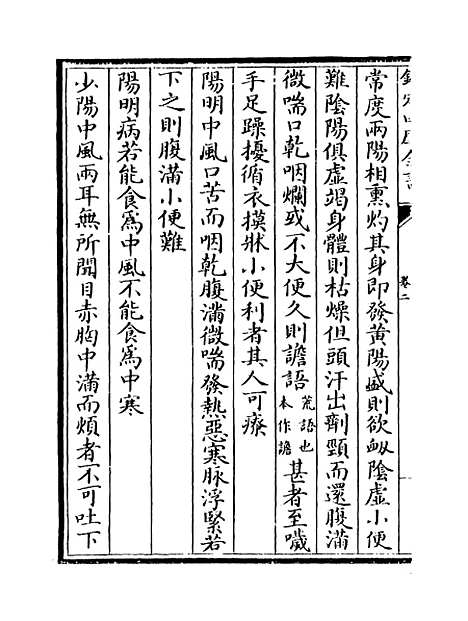 欽定四庫全書
卷二
常度兩陽相熏灼其身即發黃陽盛則欲衂陰虛小便
難陰陽俱虛竭身體則枯燥但頭汗出劑頸而還腹滿
微喘口乾咽爛或不大便久則譫語荒語也本作譫甚者至噦
手足躁擾循衣摸牀小便利者其人可療
陽明中風口苦而咽乾腹滿微喘發熱惡寒脉浮緊若
下之則腹滿小便難
陽明病若能食為中風不能食為中寒
少陽中風兩耳無所聞目赤胸中滿而煩者不可吐下